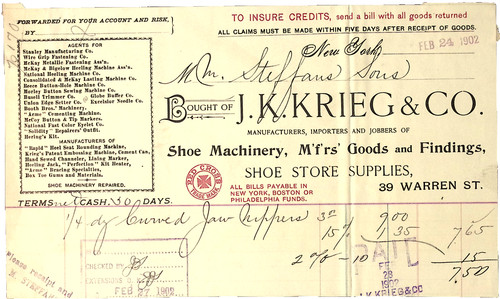 FORWARDED FOR YOUR ACCOUNT AND RISK,
BY
TO INSURE CREDITS, send a bill with all goods returned
ALL CLAIMS MUST BE MADE WITHIN FIVE DAYS AFTER RECEIPT OF GOODS.
New York, FEB 24 1902
M Wm. Steffans Sons
BOUGHT OF J. K. KRIEG & CO.
MANUFACTURERS, IMPORTERS AND JOBBERS OF
Shoe Machinery, M'f'rs' Goods and Findings,
SHOE STORE SUPPLIES,
39 WARREN ST.
RED CROSS
TRADE MARK
ALL BILLS PAYABLE IN
NEW YORK, BOSTON OR
PHILADELPHIA FUNDS.
AGENTS FOR
Stanley Manufacturing Co.
Wire Grip Fastening Co.
McKay Metallic Fastening Ass'n.
McKay & Bigelow Heeling Mach. Ass'n.
National Heeling Machine Co.
Consolidated & McKay Lasting Machine Co.
Reece Button-Hole Machine Co.
Morley Button Sewing Machine Co.
Busell Trimmer Co. Globe Buffer Co.
Union Edge Setter Co. Excelsior Needle Co.
Booth Bros.' Machinery.
"Arms" Cementing Machine.
McCoy Button & Tip Markers.
National Fast Color Eyelet Co.
"Solidity" Repairers' Outfit.
Hering's Kit.
MANUFACTURERS OF
"Rapid" Heel Seat Rounding Machine,
Krieg's Patent Embossing Machine, Cement Can,
Hand Sewed Channeler, Lining Marker,
Heeling Jack, "Perfection" Kit Heater,
"Acme" Bracing Specialties,
Box Toe Gums and Materials.
SHOE MACHINERY REPAIRED.
TERMS net CASH, 30 DAYS.
1/4 dz Curved Jaw Nippers 3 9.00
15% 1.35 7.65
2% - 10 15
7.50
CHECKED BY
EXTENSIONS
FEB 27 1902
PAID
FEB
28
1902
J.K.KRIEG & CO
Please receipt and
STEFFA